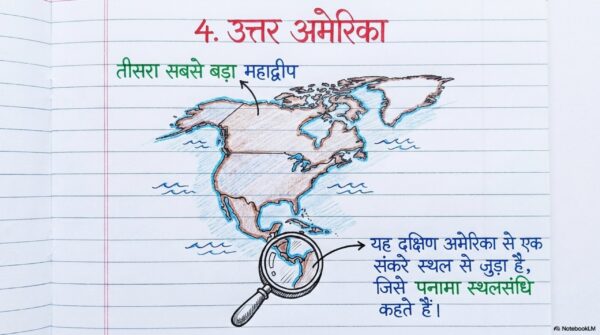 4. उत्तर अमेरिका
तीसरा सबसे बड़ा महाद्वीप
यह दक्षिण अमेरिका से एक
संकरे स्थल से जुड़ा है,
जिसे पनामा स्थलसंधि
कहते हैं।
NotebookLM